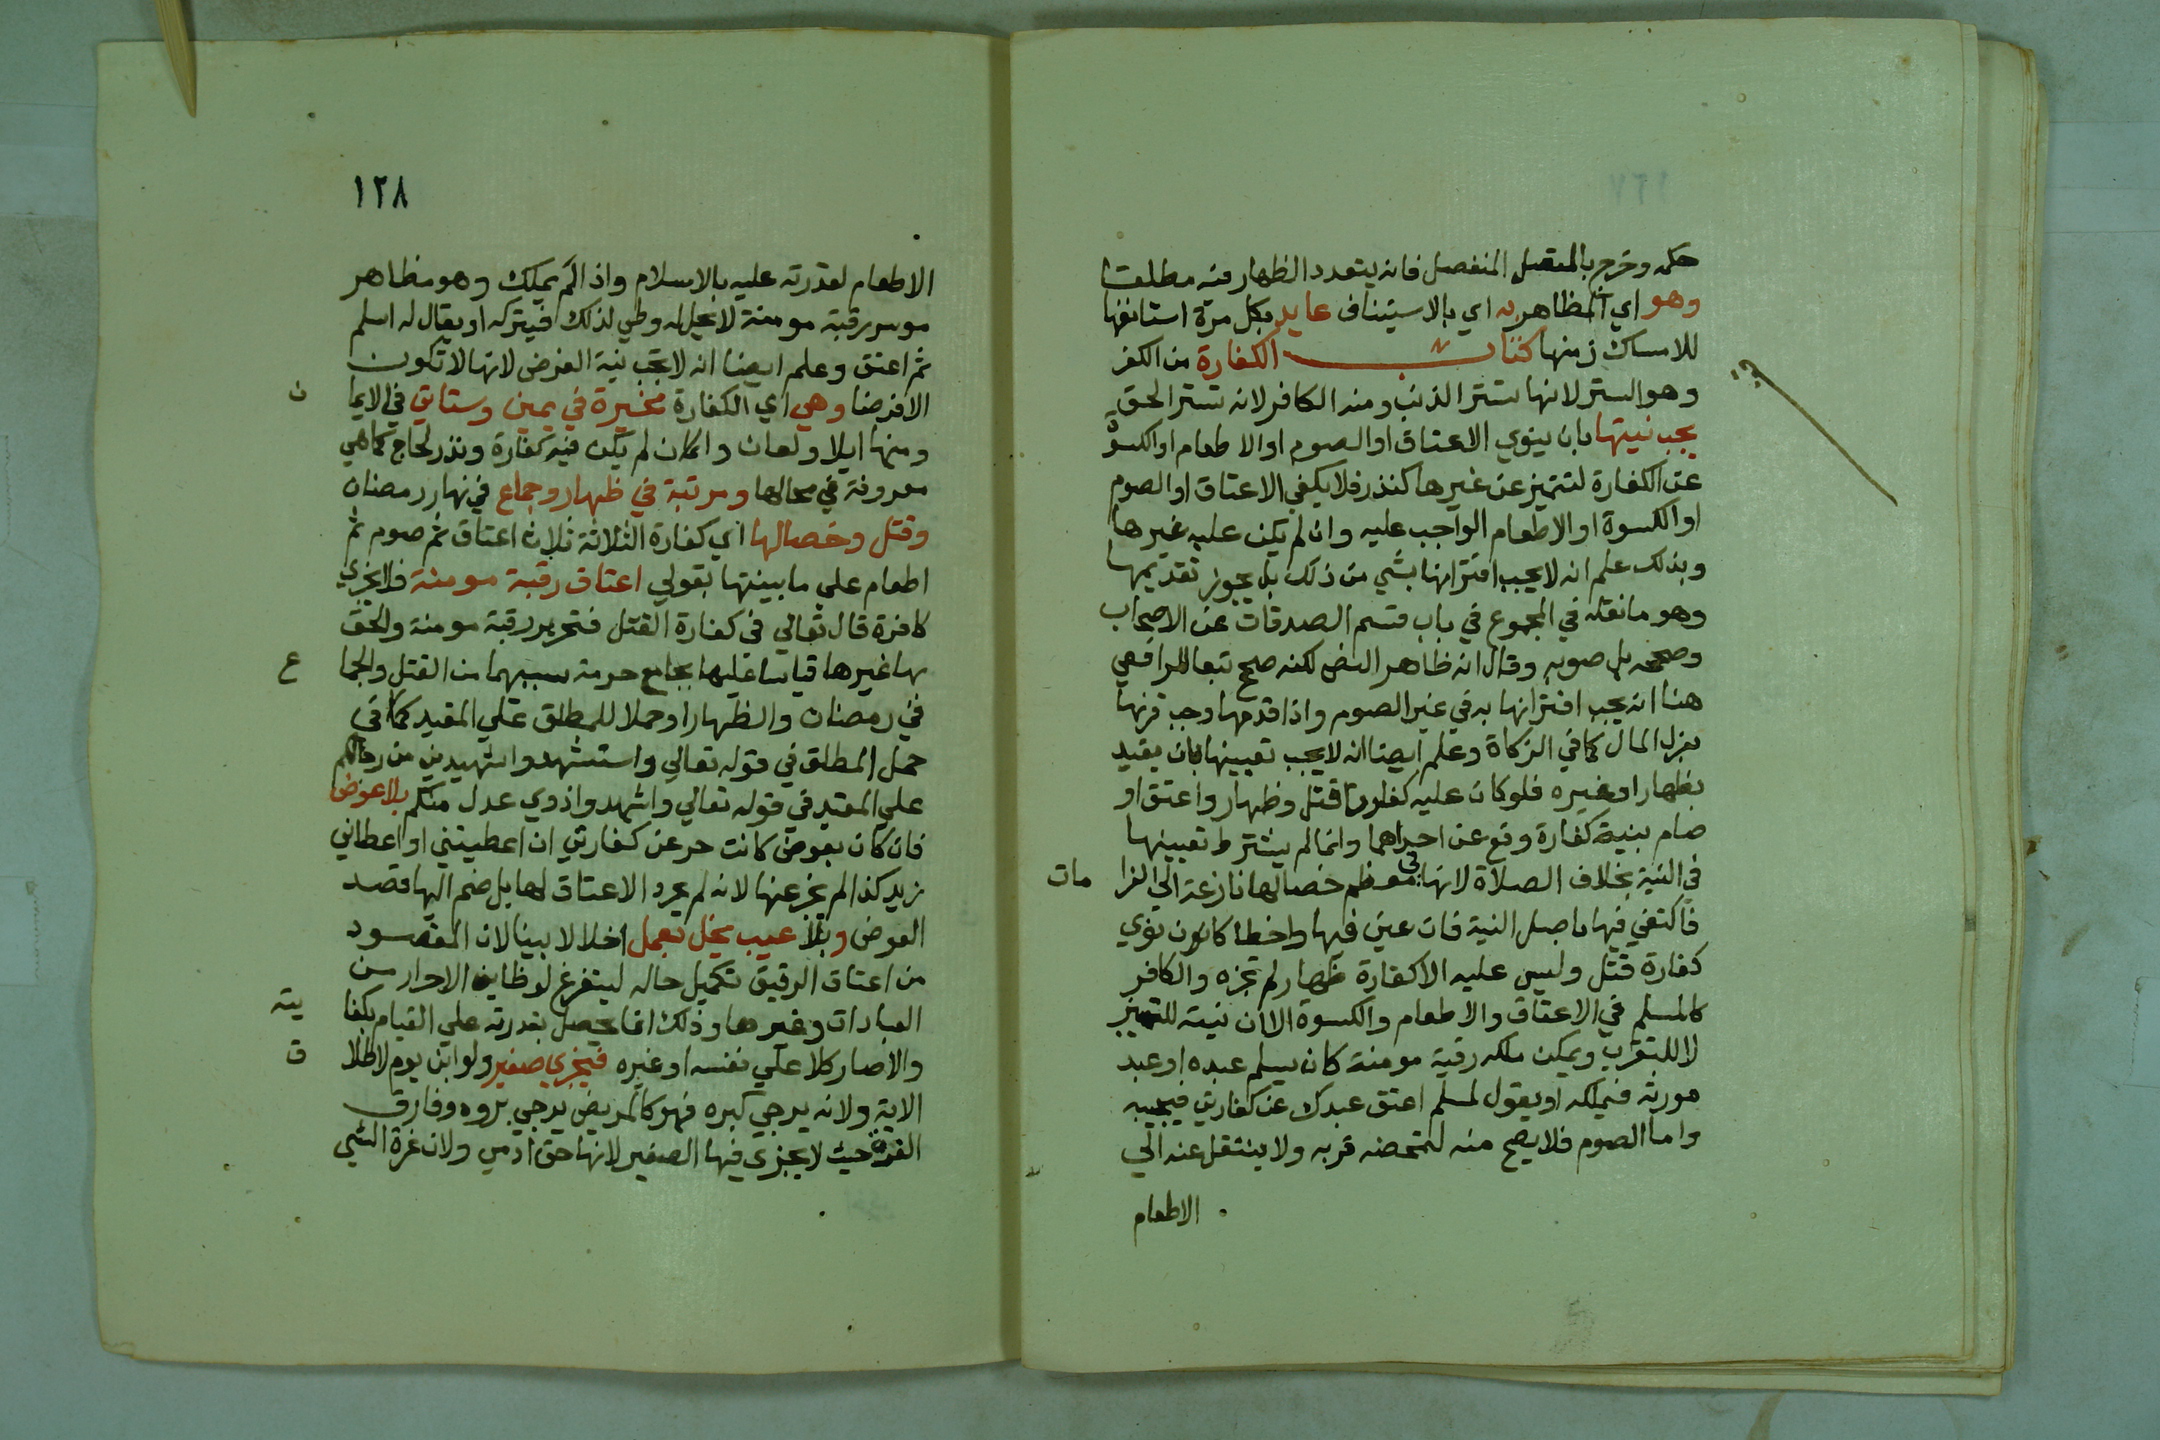 حكمه وخرج بالمتصل المنفصل فانه يتعدد الظهار فيه مطلقا
وهو اي المظاهر به اي بالاستيناف عايد بكل مرة استانفها
للامساك زمنها كتاب الكفارة من الكفر
وهو الستر لانها تستر الذنب ومنه الكافر لانه تستر الحق
يجب نيتها بان ينوي الاعتاق او الصوم او الاطعام او الكسوة
عن الكفارة لتتميز عن غيرها كنذر فلا يكفي الاعتاق او الصوم
او الكسوة او الاطعام الواجب عليه وان لم يكن عليه غيرها
وبذلك علم انه لا يجب اقترانها بشي من ذلك بل يجوز تقديمها
وهو ما نقله في المجموع في باب قسم الصدقات عن الاصحاب
وصححه بل صوبه وقال انه ظاهر النص لكنه صحح تبعا للرافعي
هنا انه يجب اقترانها به في غير الصوم واذا قدمها وجب قرنها
بعزل المال كما في الزكاة وعلم ايضا انه لا يجب تعيينها بان يقيد
بظهار او غيره فلو كان عليه كفارتا قتل وظهار واعتق او
صام بنية كفارة وقع عن احداهما وانما لم يشترط تعيينها
في النية بخلاف الصلاة لانها في معظم خصالها نازعة الي الغرا مات
فاكتفي فيها باصل النية فان عين فيها واخطا كان نوي
كفارة قتل وليس عليه الا كفارة ظهار لم تجزه والكافر
كالمسلم في الاعتاق والاطعام والكسوة الا ان نيته للتمييز
لا للتقرب ويمكن ملكه رقبة مومنة كان يسلم عبده او عبد
مورثه فيملكه او يقول لمسلم اعتق عبدك عن كفارتي فيجيبه
واما الصوم فلا يصح منه لتمحضه قربه ولا ينتقل عنه الي
الاطعام
١٢٨
الاطعام لقدرته عليه بالاسلام واذا لم يملك وهو مظاهر
موسر رقبة مومنة لا يحل له وطي لذلك فيتركه او يقال له اسلم
ثم اعتق وعلم ايضا انه لا تجب نية الفرض لانها لا تكون
الا فرضا وهي اي الكفارة مخيرة في يمين وستاتي في الايما ن
ومنها ايلا ولعان وان كان لم يكن فيه كفارة ونذر لجاج كما هي
معروفة في محالها ومرتبة في ظهار وجماع في نهار رمضان
وقتل وخصالها اي كفارة الثلاثة ثلاث اعتاق ثم صوم ثم
اطعام علي ما بينتها بقولي اعتاق رقبة مومنة فلا يجزي
كافرة قال تعالي في كفارة القتل فتحرير رقبة مومنة والحق
بها غيرها قياسا عليها بجامع حرمة سببهما من القتل والجما ع
في رمضان والظهار او حملا للمطلق علي المقيد كما في
حمل المطلق في قوله تعالي واستشهدوا شهيدين من رجالكم
علي المقيد في قوله تعالي واشهدوا ذوي عدل منكم بلا عوض
فان كان بعوض كانت حر عن كفارتي ان اعطيتني او اعطاني
زيد كذا لم يجز عنها لانه لم يجرد الاعتاق لها بل ضم اليها قصد
العوض وبلا عيب يخل بعمل اخلالا بينا لان المقصود
من اعتاق الرقيق تكميل حاله ليتفرغ لوظايف الاحرار من
العبادات وغيرها وذلك انما يحصل بقدرته علي القيام بكفا يته
والا صار كلا علي نفسه او غيره فيجزي صغير ولو ابن يوم لاطلا ق
الاية ولانه يرجي كبره فهو كالمريض يرجي بروه وفارق
الغرة حيث لا يجزي فيها الصغير لانها حق ادمي ولان غرة الشي